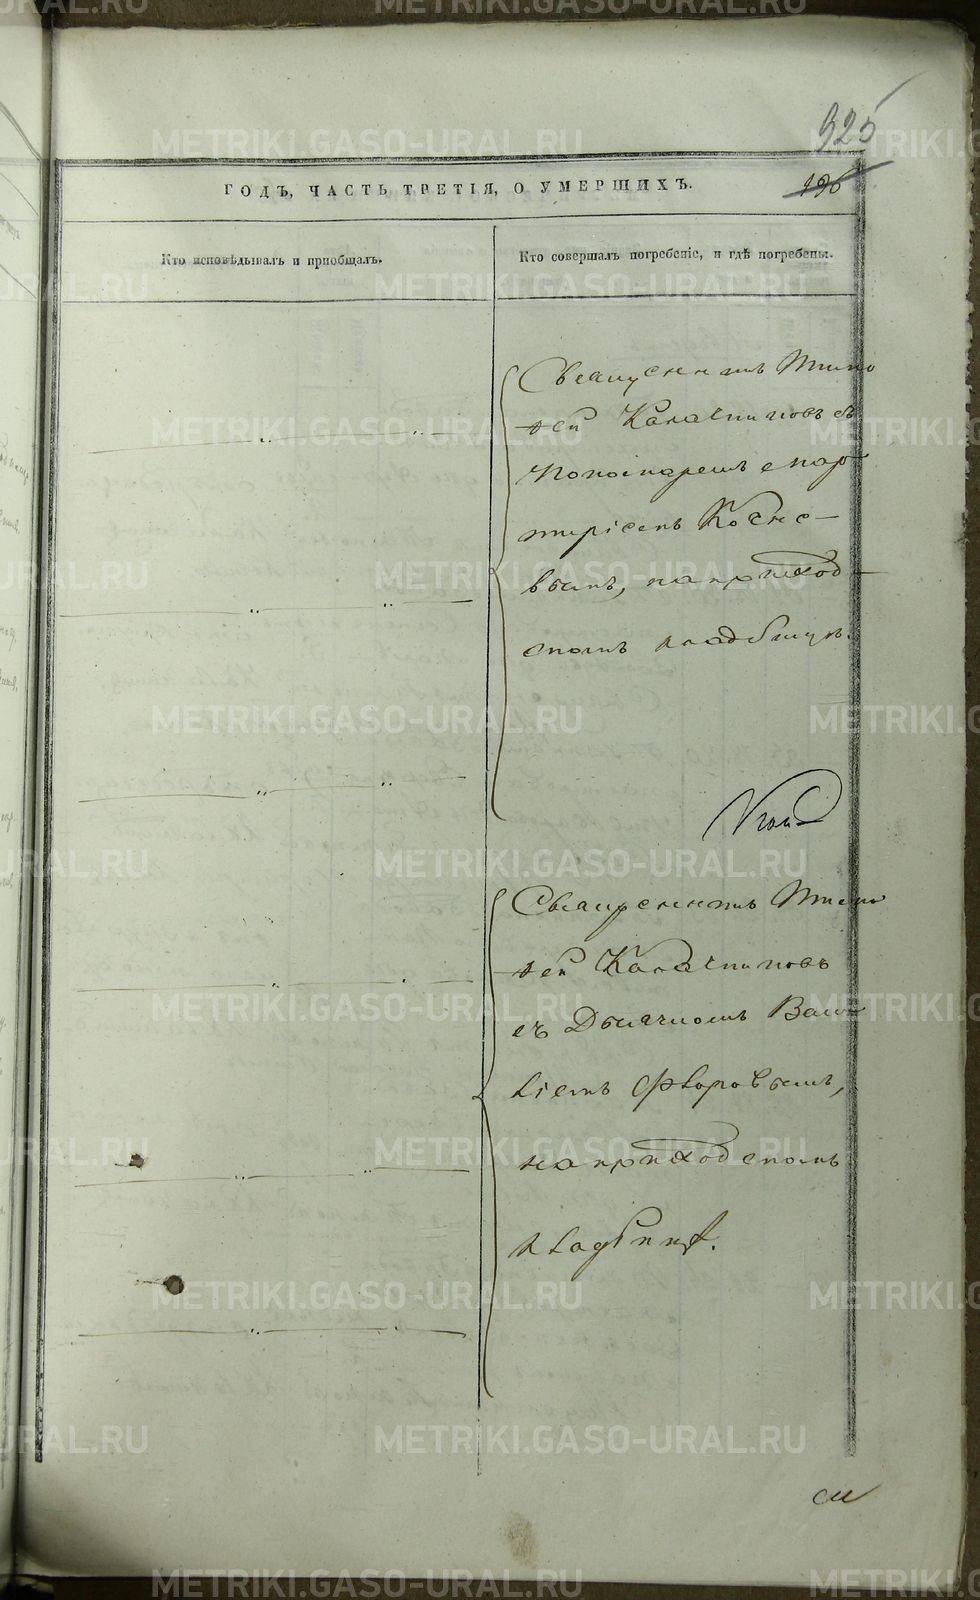 METRIKI.GASO-URAL.RU
925
196
ГОДЪ, ЧАСТЬ ТРЕТІЯ, О УМЕРШИХЪ.
Кто исповѣдывалъ и пріобщалъ.
Кто совершалъ погребеніе, и гдѣ погребены.
Священникъ Тимо
ѳей Калачниковъ съ
Пономаремъ
вымъ, на приход
скомъ кладбищѣ.
Священникъ Тимо
ѳей Калачниковъ
съ Дьячкомъ Васи
ліемъ Флоровымъ,
на приходскомъ
кладбищѣ.